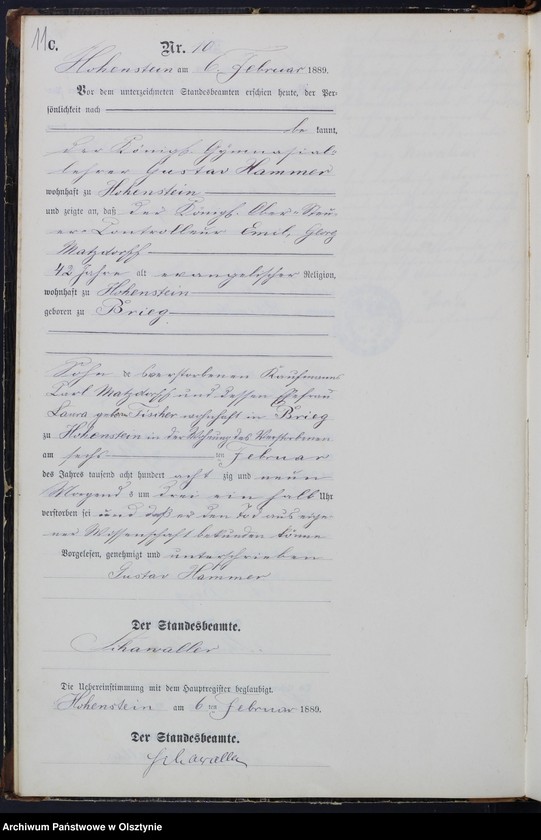 11
C.
Nr. 10
Hohenstein am 6. Februar 1889.
Vor dem unterzeichneten Standesbeamten erschien heute, der Per-
sönlichkeit nach
be kannt,
der Königl. Gymnasial-
lehrer Gustav Hammer
wohnhaft zu Hohenstein
und zeigte an, daß der Königl. Ober-Steu-
er-Controlleur Emil, Georg
Matzdorff
42 Jahre alt evangelischer Religion,
wohnhaft zu Hohenstein
geboren zu Brieg
Sohn des verstorbenen Kaufmanns
Carl Matzdorff und dessen Ehefrau
Laura geborne Fischer wohnhaft in Brieg
zu Hohenstein in der Wohnung des Verstorbenen
am sechsten Februar
des Jahres tausend acht hundert acht zig und neun
Morgens um drei ein halb Uhr
verstorben sei und daß er den Tod aus eige-
ner Wissenschaft bekunden könne
Vorgelesen, genehmigt und unterschrieben
Gustav Hammer
Der Standesbeamte.
Schawaller
Die Uebereinstimmung mit dem Hauptregister beglaubigt.
Hohenstein am 6ten Februar 1889.
Der Standesbeamte.
Schawaller
Archiwum Państwowe w Olsztynie